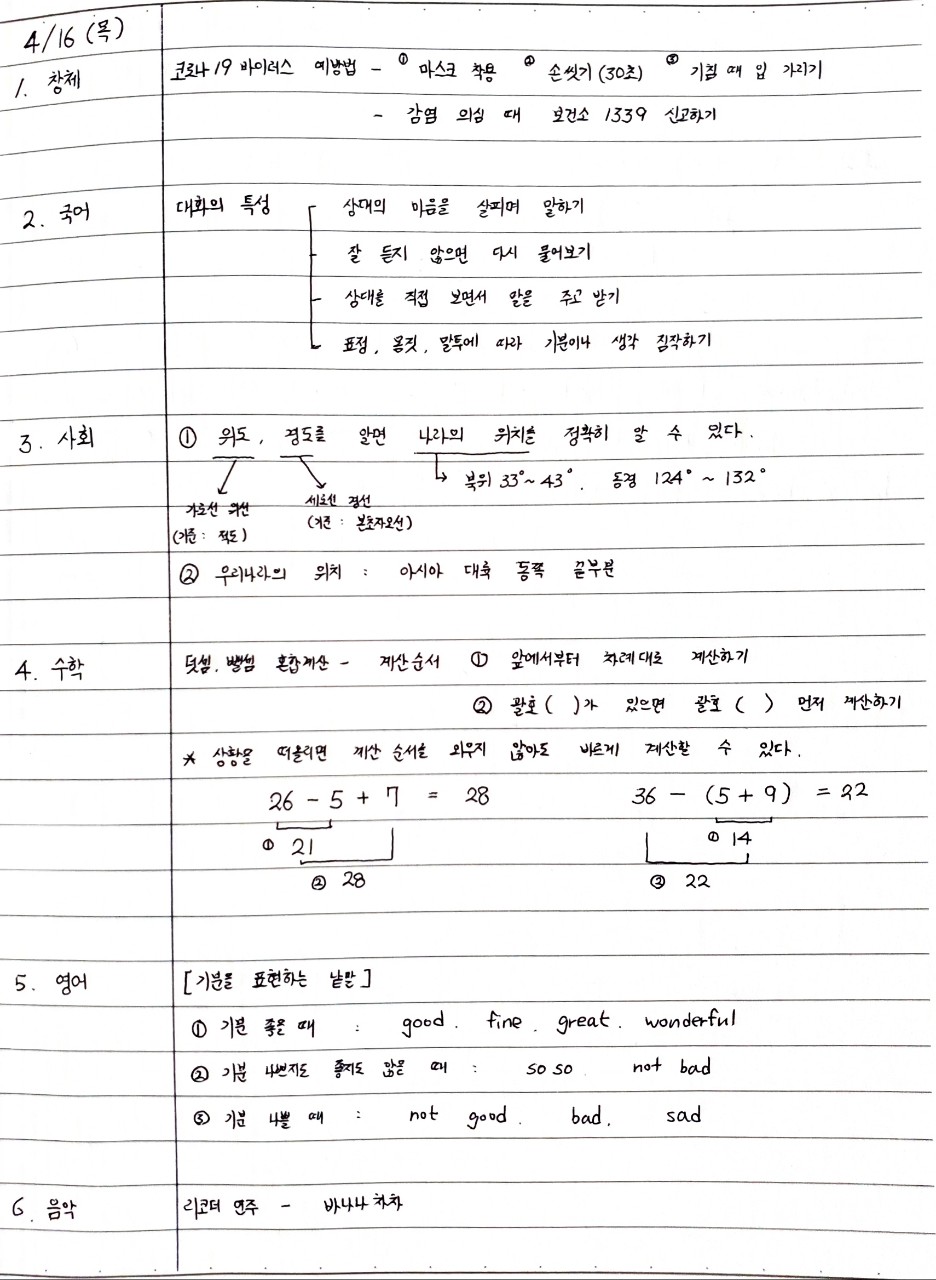 4/16 (목)
1. 창체 코로나19 바이러스 예방법 - ① 마스크 착용 ② 손씻기 (30초) ③ 기침 때 입 가리기
- 감염 의심 때 보건소 1339 신고하기
2. 국어 대화의 특성 상대의 마음을 살피며 말하기
잘 듣지 않으면 다시 물어보기
상대를 직접 보면서 말을 주고 받기
표정, 몸짓, 말투에 따라 기분이나 생각 짐작하기
3. 사회 ① 위도, 경도를 알면 나라의 위치를 정확히 알 수 있다.
북위 33°~43°. 동경 124°~132°
가로선 위선 세로선 경선
(기준 : 적도) (기준 : 본초자오선)
② 우리나라의 위치 : 아시아 대륙 동쪽 끝부분
4. 수학 덧셈, 뺄셈 혼합계산 - 계산순서 ① 앞에서부터 차례대로 계산하기
② 괄호 ( )가 있으면 괄호 ( ) 먼저 계산하기
* 상황을 떠올리면 계산 순서를 외우지 않아도 바르게 계산할 수 있다.
26 - 5 + 7 = 28 36 - (5 + 9) = 22
① 21 ① 14
② 28 ② 22
5. 영어 [기분을 표현하는 낱말]
① 기분 좋을 때 : good. fine. great. wonderful
② 기분 나쁘지도 좋지도 않을 때 : so so not bad
③ 기분 나쁠 때 : not good. bad. sad
6. 음악 리코더 연주 - 바나나차차